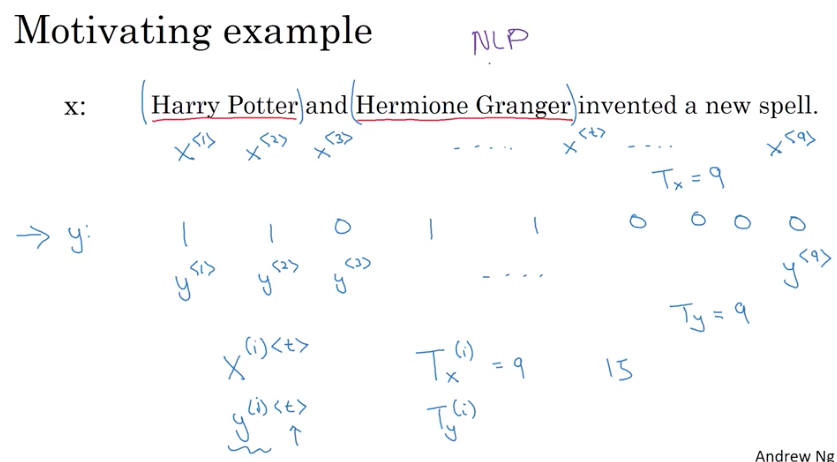 Motivating example
NLP
x: Harry Potter and Hermione Granger invented a new spell.
x<1> x<2> x<3> ..... x<t> .... x<9>
Tx = 9
→ y: 1 1 0 1 1 0 0 0 0
y<1> y<2> y<3> .... y<9>
Ty = 9
X(i)<t> Tx(i) = 9 15
y(i)<t> ↑ Ty(i)
Andrew Ng